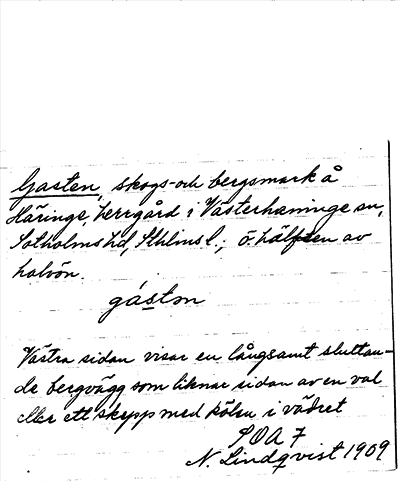 Gasten, skogs- och bergsmark å
Häringe, herrgård i Västerhaninge sn,
Sotholms hd, Sthlms l.; ö. hälften av
halvön.
gáston
Västra sidan visar en långsamt sluttan-
de bergvägg som liknar sidan av en val
eller ett skepp med kölen i vädret
SOA 7
N. Lindqvist 1909